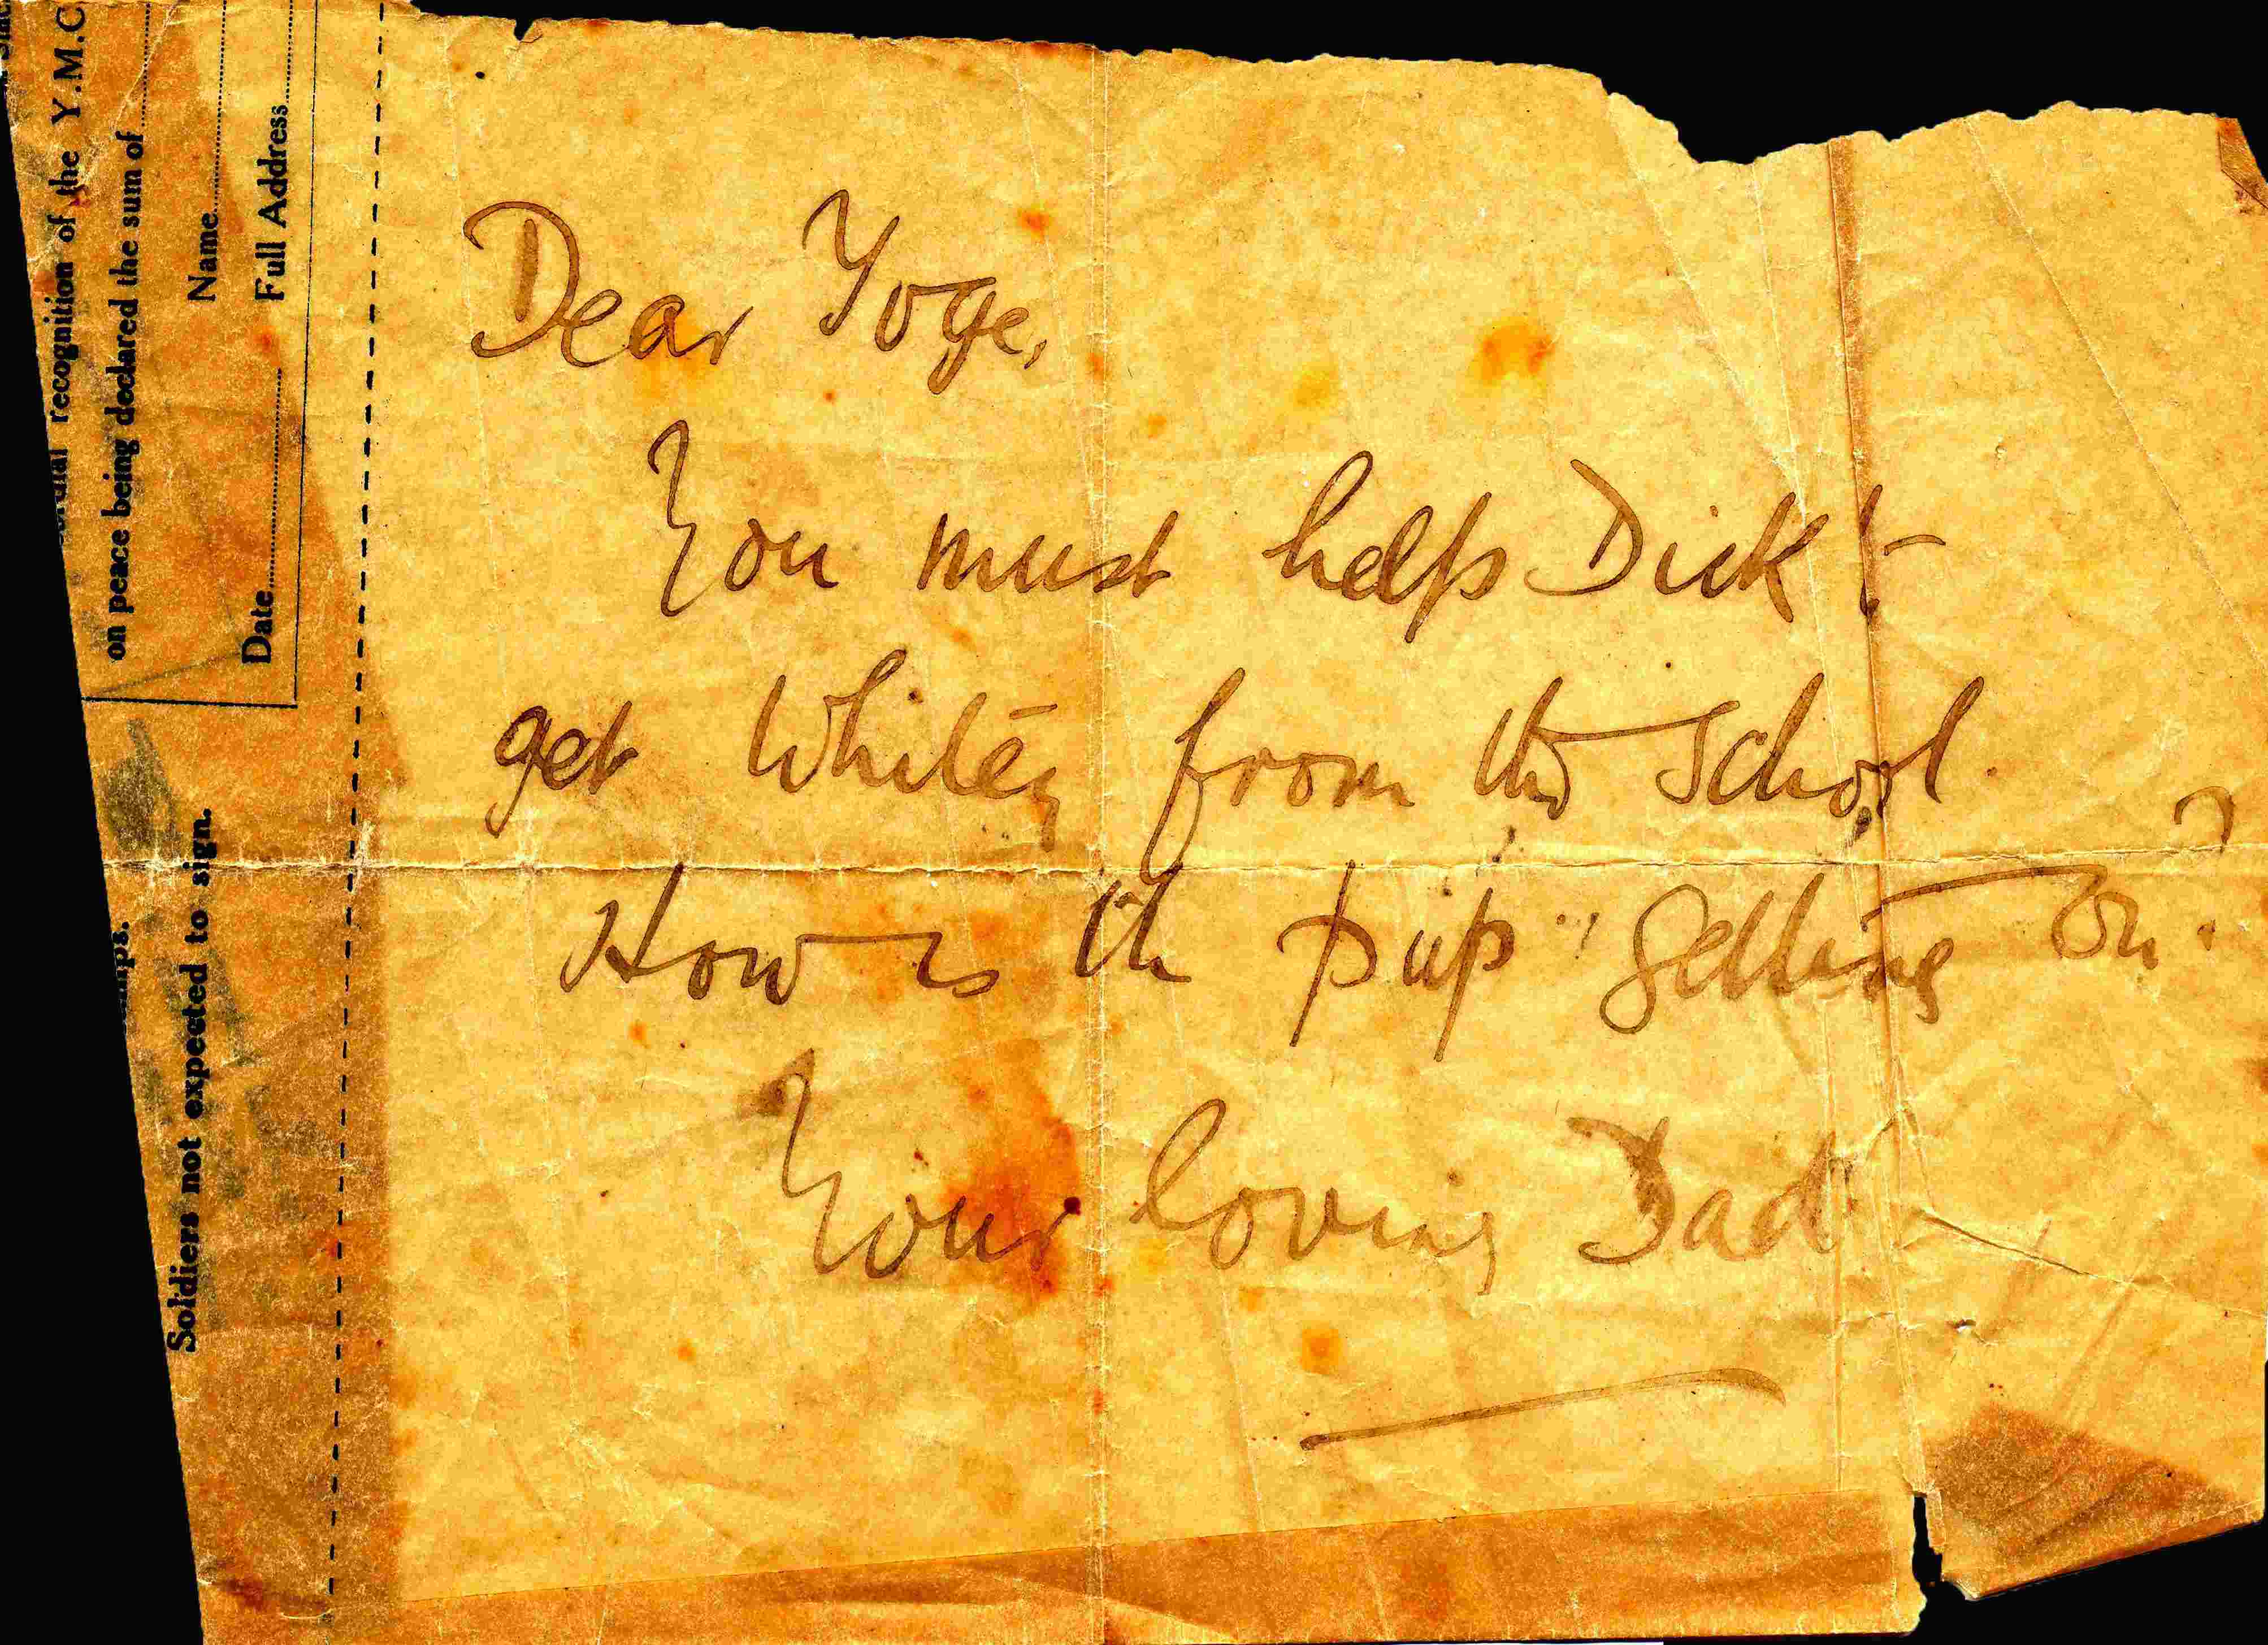 recognition of the Y.M.C
on peace being declared the sum of
Name
Date Full Address
Soldiers not expected to sign.
Dear Yoge,
You must help Dick to
get Whitey from the school.
How is the pup getting on?
Your loving Dad